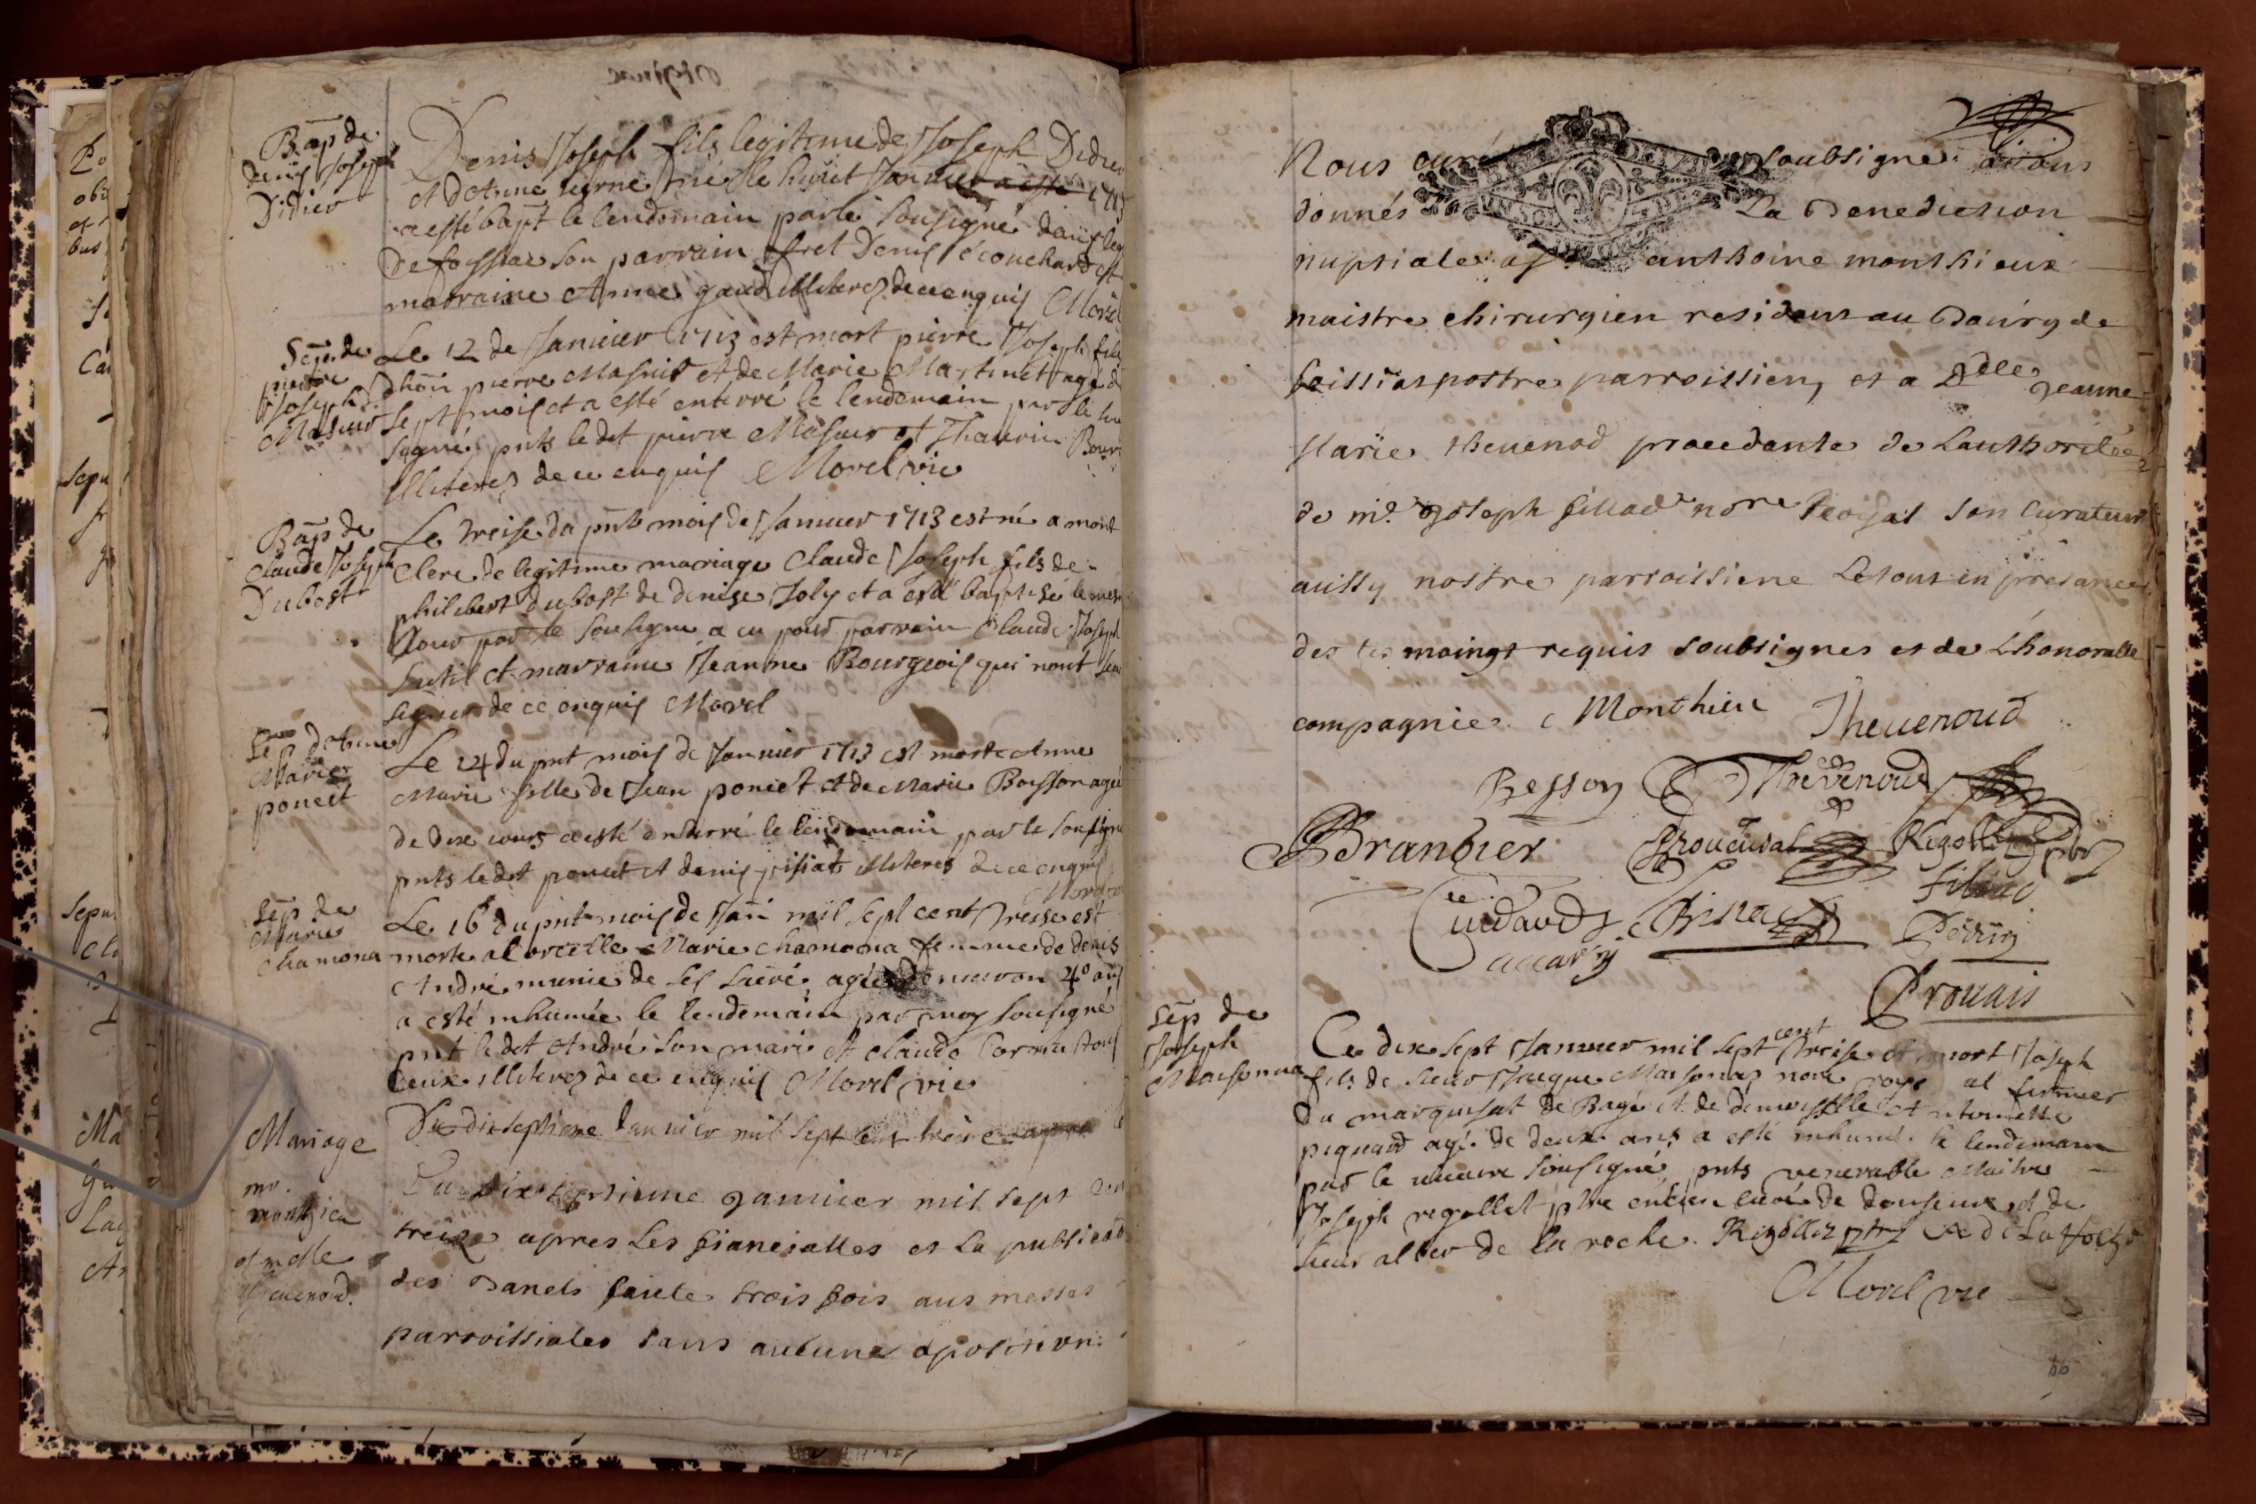 Bap de
denis Joseph
Didier
Denis Joseph fils legitime de Joseph Didier
et de Anne né le huict Janvier 1713
a esté bapt le lendemain par le sousigné dans
son parrain Denis
marraine Anne gaud illiterez de ce enquis Morel
Sep de
pierre
Joseph
Masuir
Le 12 de Janvier 1713 est mort pierre Joseph fils
dhon pierre Masuir et de Marie Martinet agé de
sept mois et a esté enterré le lendemain par le sou
signé pnts ledit pierre Masuir et Thaurin
illiterez de ce enquis Morel vic
Bap de
Claude Joseph
Dubost
Le treise du pnt mois de Janvier 1713 est né a mont
clere de legitime mariage Claude Joseph fils de
philibert Dubost de denise Joly et a esté baptisé le mesme
Jour par le sousigné a eu pour parrain Claude Joseph
Subtil et marraine Jeanne Bourgeois qui nont sceu
signer de ce enquis Morel
Sep de Anne
Marie
poncet
Le 14 du pnt mois de Janvier 1713 est morte Anne
Marie fille de Jean poncet et de Marie Boisson agée
de dix jours a esté enterré le lendemain par le sousigné
pnts ledit poncet et denis illiterez de ce enquis
Morel
Sep de
Marie
chamona
Le 16 du pnt mois de Jan mil sept cent treise est
morte al orcelle Marie chamona femme de denis
André munie de ses agée denviron 40 ans
a esté inhumée le lendemain par moy sousigné
pnt ledit André son mari et claude Cormu tous
deux illiterez de ce enquis Morel vic
Du dixseptieme Janvier mil sept cent treize
Mariage
mr.
monthieu
et melle
theuenod.
Du dix septsieme Janvier mil sept cent
treize apres les fiancialles et la publication
des banets faicte trois fois aus messes
parroissiales sans aucune oposition
Nous curé soubsigné avions
donnés La Benediction
nuptiale a anthoine monthieux
maistre chirurgien residens au Bourg de
nostre parroissien, et a Ddle Jeanne
Marie theuenod procedante de Lauthoritée
de me Joseph fillod nore Royal son curateur
aussy nostre parroissiene Le tout en presance
des tesmoingt requis soubsignes et de Lhonorable
compagnie. Monthieu Theuenoud
Besson Thevenoud
Brangier Rigollet pbr
fillod
Perrin
accarry
Prouais
Sep de
Joseph
Maisonna
Ce dix sept Janvier mil sept cent treise est mort Joseph
fils de sieur Jacque Maisonna nore royal fermier
du marquisat de Bagé et de demoiselle Antoinette
piquand agé de deux ans a esté inhumé le lendemain
par le vicaire sousigné pnts venerable Maitre
Joseph regollet ptre encien curé de et de
sieur alber de la roche. Rigollet ptre
Morel vic